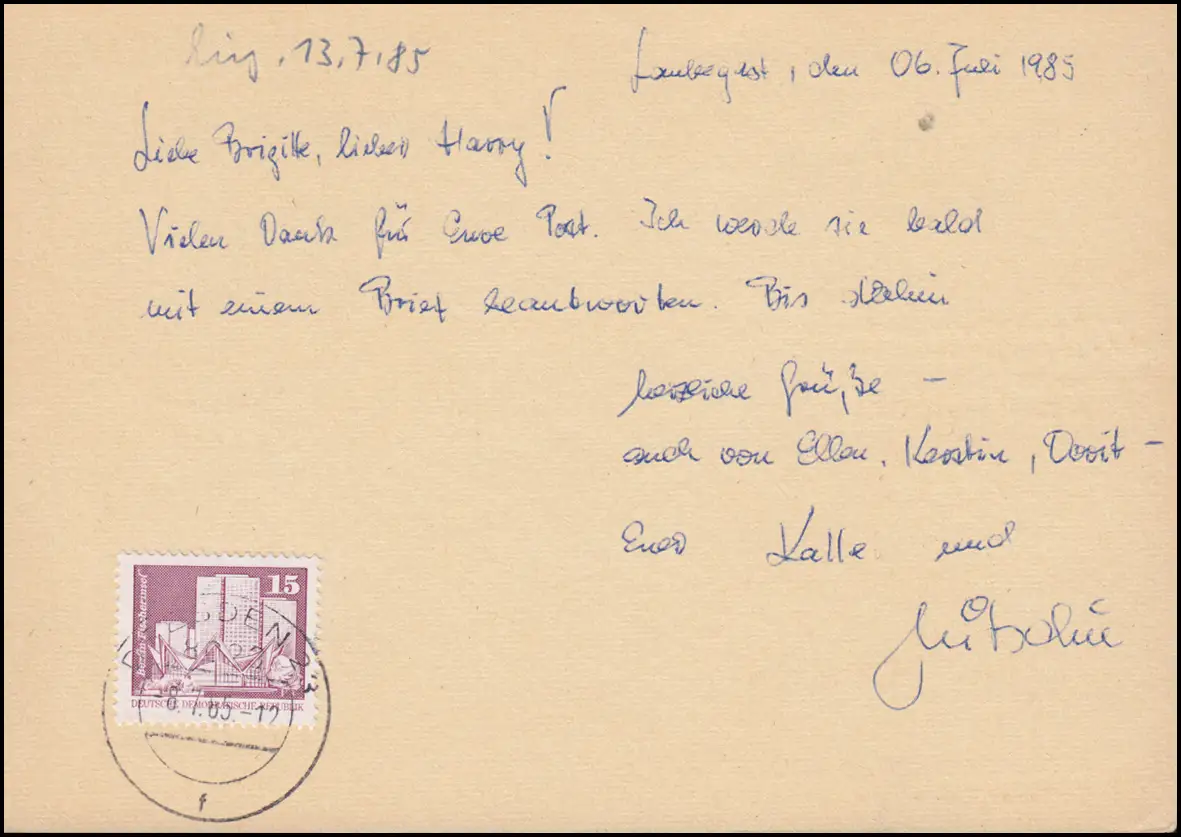 Eing. 13.7.85
Laubegast, den 06. Juli 1985
Liebe Brigitte, lieber Harry!
Vielen Dank für Eure Post. Ich werde sie bald
mit einem Brief beantworten. Bis dahin
herzliche Grüße –
auch von Ellen, Kerstin, Dorit –
Euer Kalle und
15
Berlin Fischerinsel
DEUTSCHE DEMOKRATISCHE REPUBLIK
DRESDEN 23
-8.7.85.-12
f